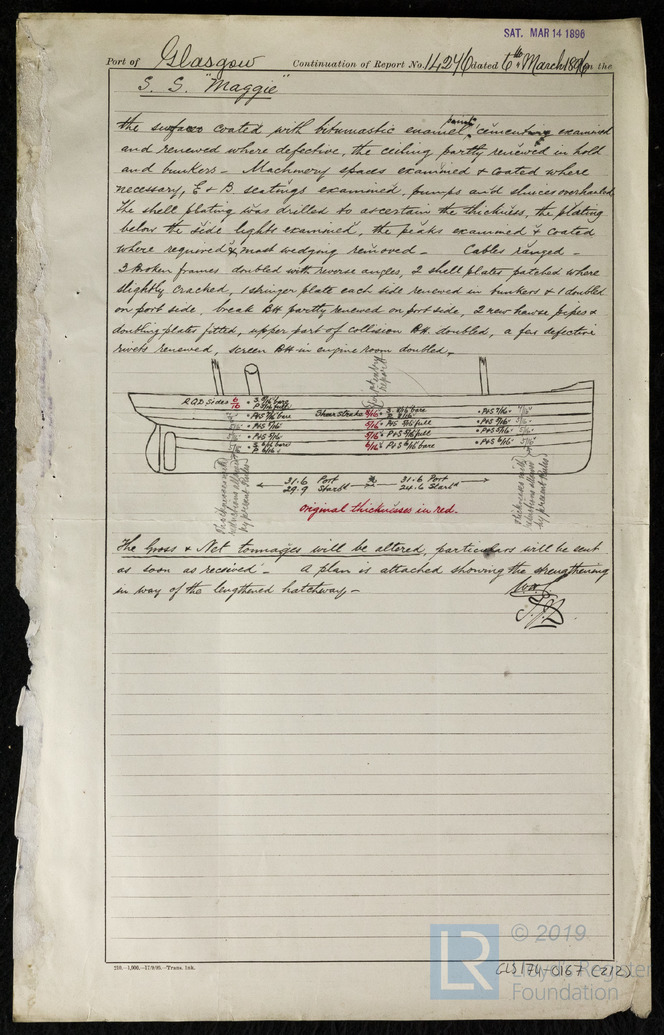 SAT. MAR 14 1896
Port of Glasgow Continuation of Report No. 14246 dated 6th March 1896 on the
S. S. "Maggie"
the surfaces coated with bitumastic enamel, cementing examined
and renewed where defective, the ceiling partly renewed in hold
and bunkers - Machinery spaces examined & coated where
necessary, E & B seatings examined, pumps and sluices overhauled
The shell plating was drilled to ascertain the thickness, the plating
below the side lights examined, the peaks examined & coated
where required & mast wedging removed - Cables ranged -
3 Broken frames doubled with reverse angles, 2 shell plates patched where
slightly cracked, 1 stringer plate each side renewed in bunkers & 1 doubled
on port side, break BH partly renewed on port side, 2 new hawse pipes &
doubling plates fitted, upper part of collision BH. doubled, a few defective
rivets renewed, screen BH in engine room doubled,
R.Q.D. Sides 6/16 S. 5/16 bare
P 5/16 full
P&S 7/16 bare
P&S 5/16
P&S 5/16
Sheer strake
P&S 5/16 full
P&S 5/16 full
P&S 6/16 bare
P&S 7/16
P&S 5/16
P&S 5/16
P&S 6/16
Thicknesses with
reductions allowed
by present Rules
Thicknesses with
reductions allowed
by present Rules
31.6 Port 31.6 Port
29.9 Starbd 24.6 Starbd
original thicknesses in red.
The Gross & Net tonnages will be altered, particulars will be sent
as soon as received - A plan is attached showing the strengthening
in way of the lengthened hatchway -
210.—1,000.—17/9/95.—Trans. Ink.
© 2019
LR
Lloyd's Register
Foundation
GLS174-0167 (2/2)